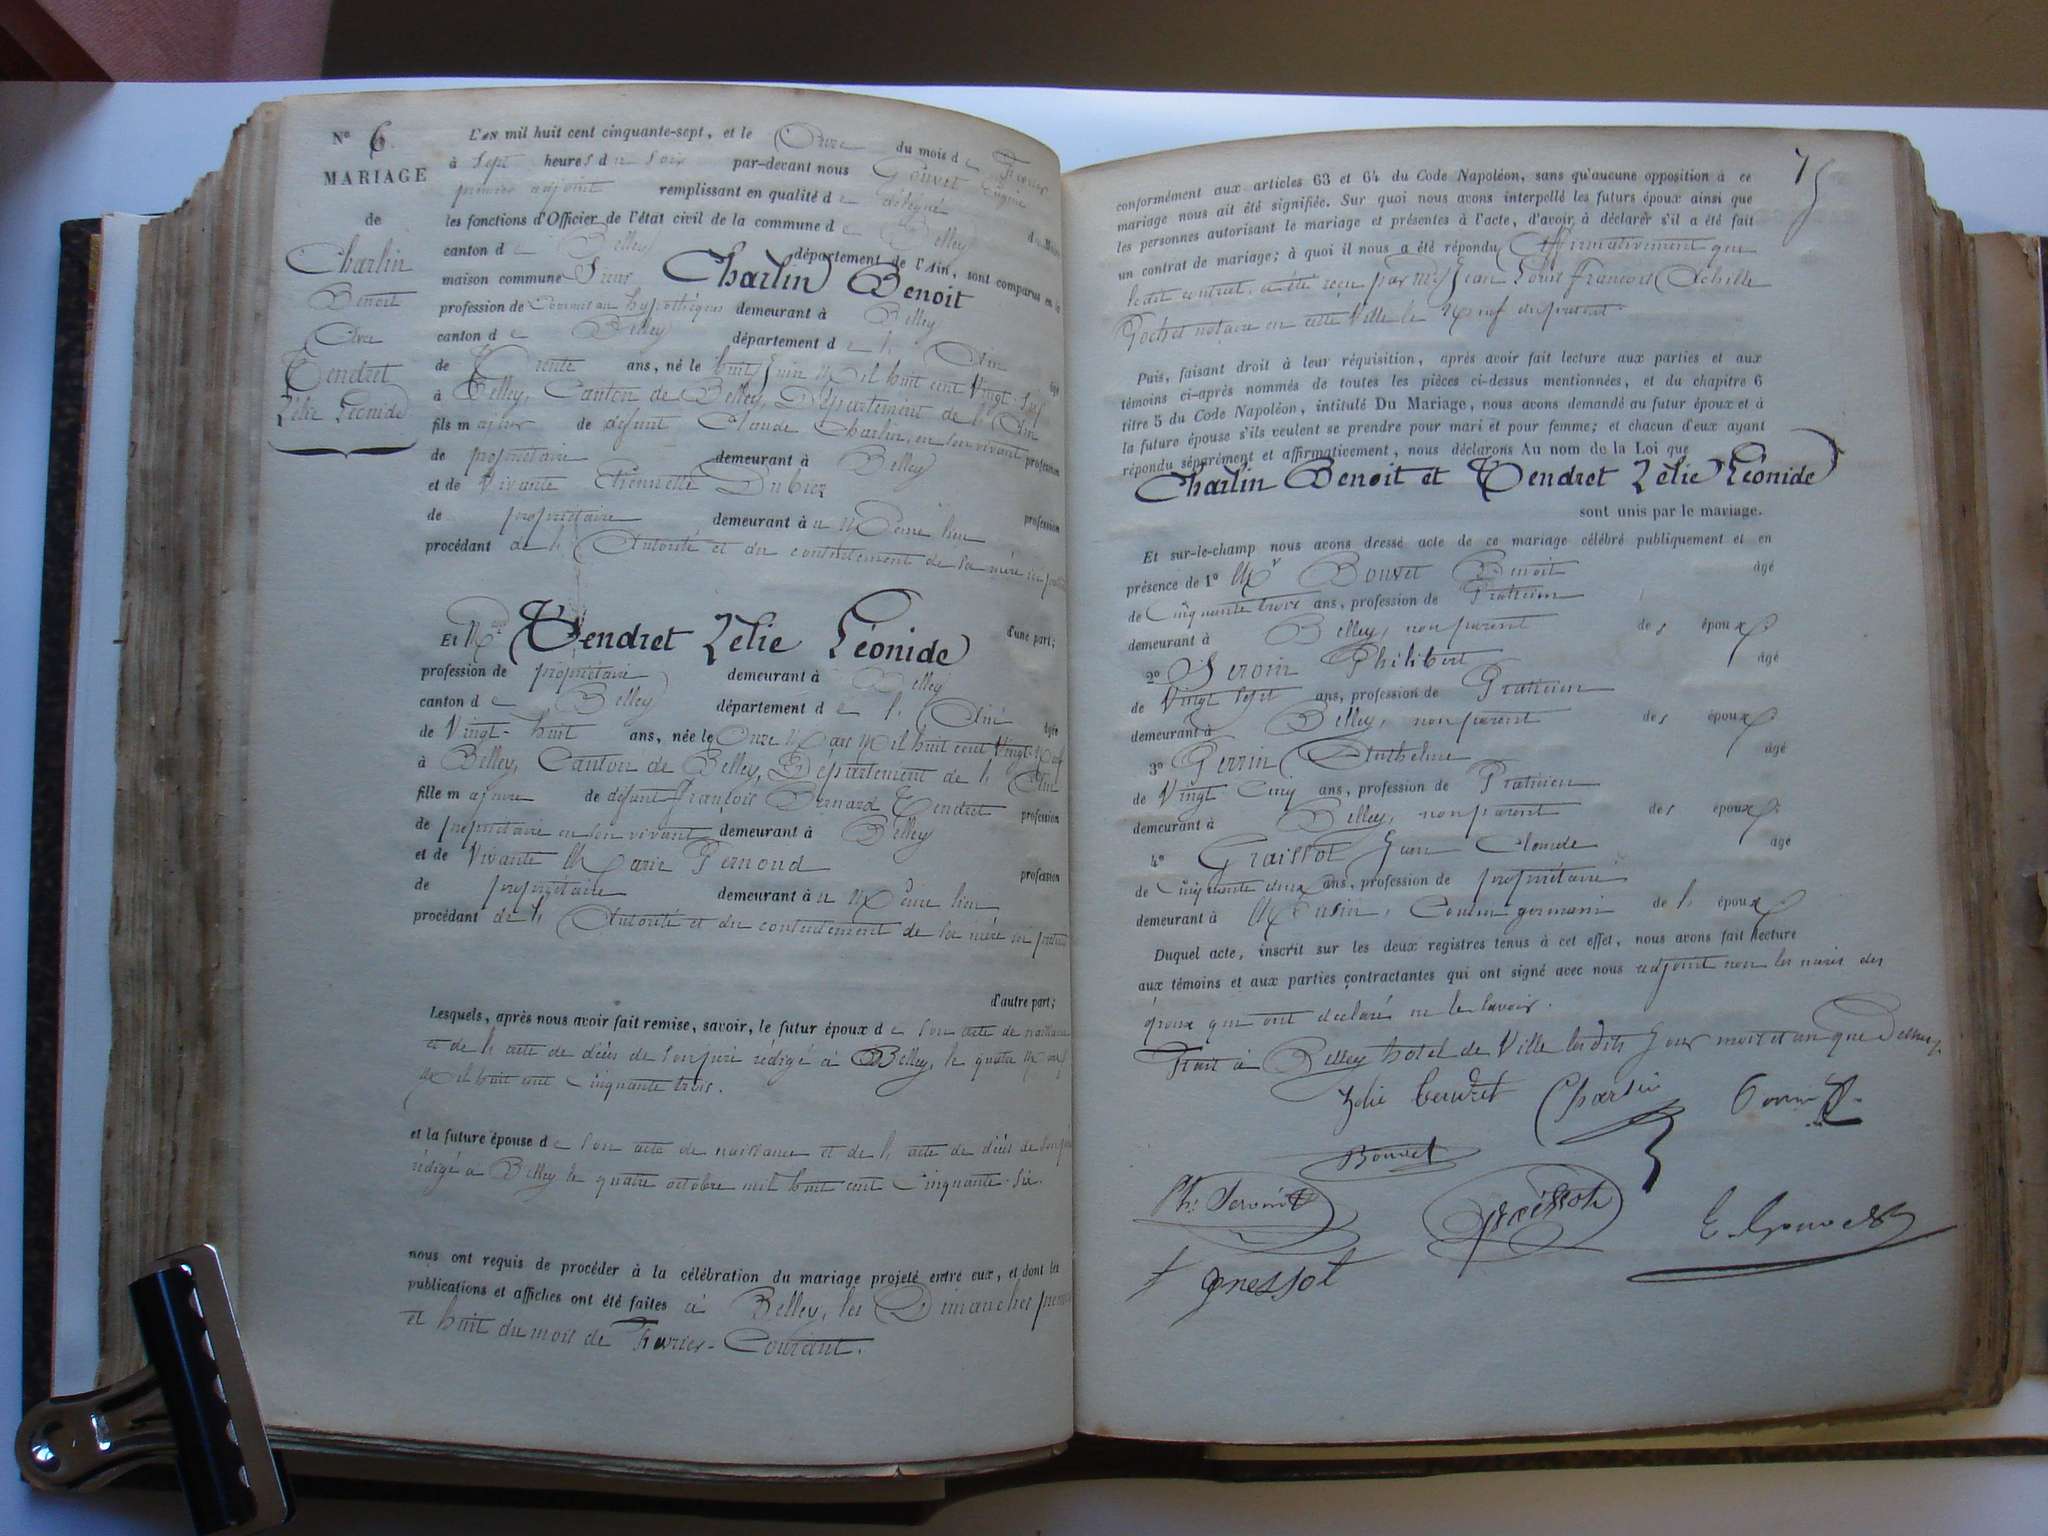 N° 6
MARIAGE
de
Charlin
Benoit
Avec
Tendret
Zélie Léonide
L'an mil huit cent cinquante-sept, et le Onze du mois de Février
à sept heures du soir par-devant nous Gouvet Eugène
premier adjoint remplissant en qualité de délégué du Maire
les fonctions d'Officier de l'état civil de la commune de Belley
canton de Belley département de l'Ain, sont comparus en la
maison commune Sieur Charlin Benoit
profession de Commis au hypothèques demeurant à Belley
canton de Belley département de l'Ain âgé
de Trente ans, né le huit Juin Mil huit cent Vingt-six
à Belley, Canton de Belley, Département de l'Ain
fils majeur de défunt Claude Charlin, en son vivant profession
de propriétaire demeurant à Belley
et de Vivante Etiennette Dubiez profession
de propriétaire demeurant au Même lieu
procédant de l'Autorité et du consentement de sa mère ici présente
d'une part;
Et Mlle Tendret Zélie Léonide
profession de propriétaire demeurant à Belley
canton de Belley département de l'Ain âgée
de Vingt-huit ans, née le Onze Mars Mil huit cent Vingt-Neuf
à Belley, Canton de Belley, Département de l'Ain
fille majeure de défunt François Bernard Tendret profession
de propriétaire en son vivant demeurant à Belley
et de Vivante Marie Pernond profession
de propriétaire demeurant au Même lieu
procédant de l'Autorité et du consentement de sa mère ici présente
d'autre part;
Lesquels, après nous avoir fait remise, savoir, le futur époux de son acte de naissance
et de l'acte de décès de son père rédigé à Belley, le quatre Mars
Mil huit cent Cinquante trois.
et la future épouse de son acte de naissance et de l'acte de décès de son père
rédigé à Belley le quatre octobre mil huit cent Cinquante-six.
nous ont requis de procéder à la célébration du mariage projeté entre eux, et dont les
publications et affiches ont été faites à Belley, les Dimanches premier
et huit du mois de Février-Courant.
75
conformément aux articles 63 et 64 du Code Napoléon, sans qu'aucune opposition à ce
mariage nous ait été signifiée. Sur quoi nous avons interpellé les futurs époux ainsi que
les personnes autorisant le mariage et présentes à l'acte, d'avoir à déclarer s'il a été fait
un contrat de mariage; à quoi il nous a été répondu Affirmativement que
ledit contrat a été reçu par Me Jean Louis François Achille
Pochet notaire en cette Ville le Neuf du présent.
Puis, faisant droit à leur réquisition, après avoir fait lecture aux parties et aux
témoins ci-après nommés de toutes les pièces ci-dessus mentionnées, et du chapitre 6
titre 5 du Code Napoléon, intitulé Du Mariage, nous avons demandé au futur époux et à
la future épouse s'ils veulent se prendre pour mari et pour femme; et chacun d'eux ayant
répondu séparément et affirmativement, nous déclarons Au nom de la Loi que
Charlin Benoit et Tendret Zélie Léonide
sont unis par le mariage.
Et sur-le-champ nous avons dressé acte de ce mariage célébré publiquement et en
présence de 1° Mr Bouvet Benoit âgé
de Cinquante trois ans, profession de Praticien
demeurant à Belley, non parent des époux.
2° Servin Philibert âgé
de Vingt sept ans, profession de Praticien
demeurant à Belley, non parent des époux.
3° Perrin Anthelme âgé
de Vingt Cinq ans, profession de Praticien
demeurant à Belley, non parent des époux.
4° Graissot Jean Claude âgé
de Cinquante deux ans, profession de propriétaire
demeurant à Cousin germain de l'époux
Duquel acte, inscrit sur les deux registres tenus à cet effet, nous avons fait lecture
aux témoins et aux parties contractantes qui ont signé avec nous adjoint non les mères des
époux qui ont déclaré ne le savoir.
Fait à Belley hotel de Ville les dits Jour mois et an que Dessus.
Zélie Tendret Charlin
Bouvet
Ph. Servin
Graissot E. Gouvet